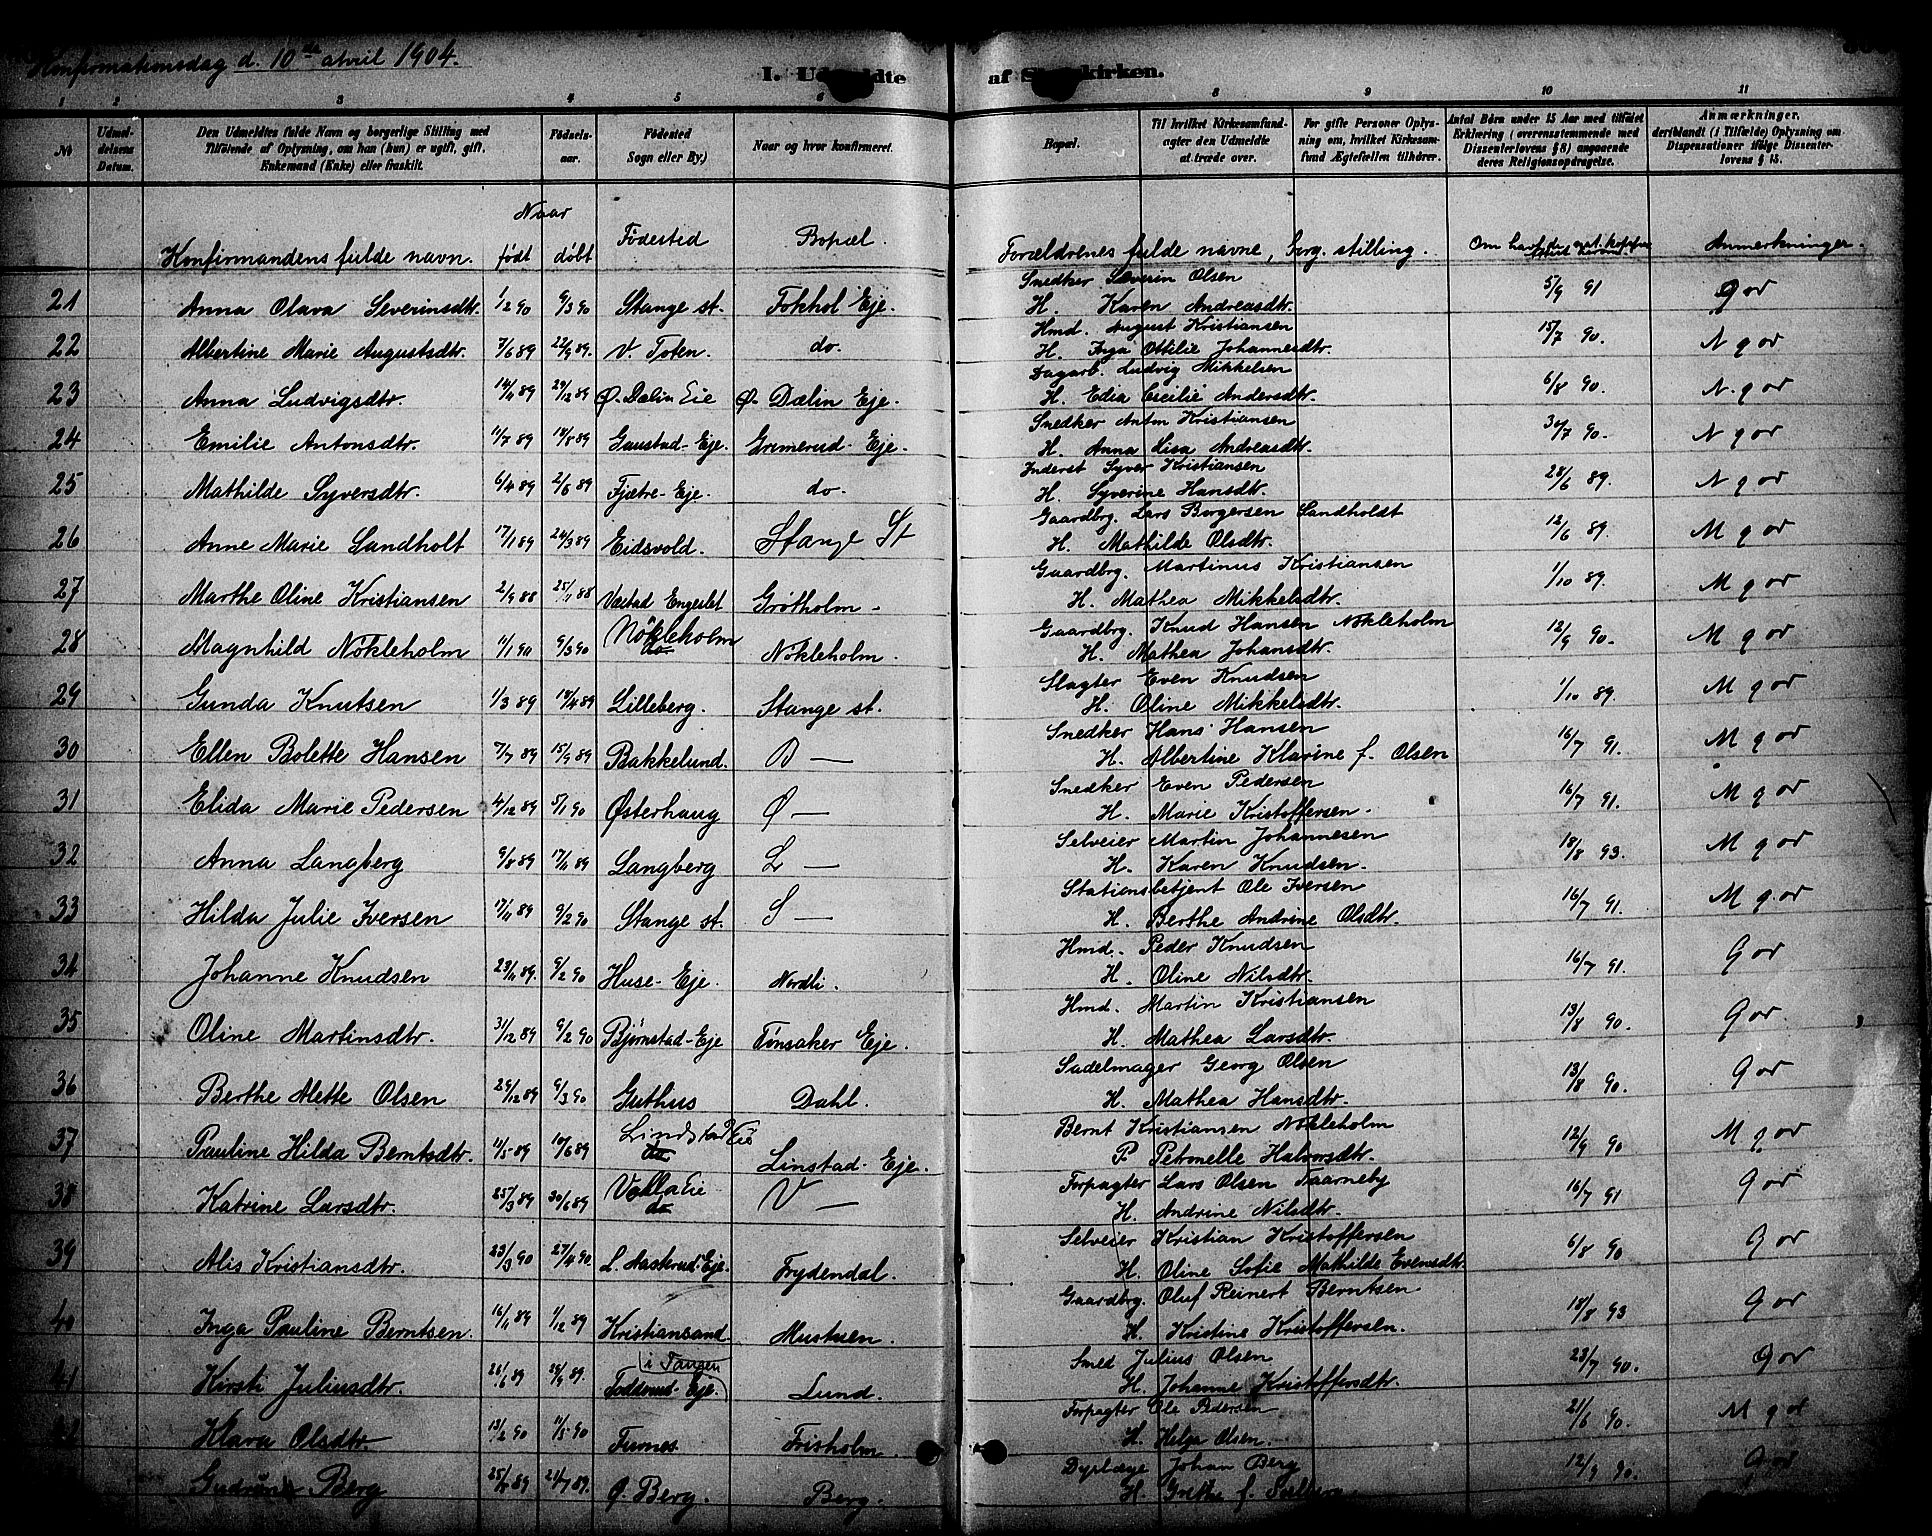 Konfirmationsdag d. 10de april 1904.
I. Udmeldte af Statskirken.
1 2 3 4 5 6 8 9 10 11
No
Udmeldelsens Datum.
Den Udmeldtes fulde Navn og borgerlige Stilling med Tilføiende af Oplysning, om han (hun) er ugift, gift, Enkemand (Enke) eller fraskilt.
Fødselsaar.
Fødested Sogn eller By.)
Naar og hvor konfirmeret.
Bopæl.
Til hvilket Kirkesamfund agter den Udmeldte at træde over.
For gifte Personer Oplysning om, hvilket Kirkesamfund Ægtefællen tilhører.
Antal Børn under 15 Aar med tilføiet Erklæring (overensstemmende med Dissenterlovens § 8) angaaende deres Religionsopdragelse.
Anmærkninger, deriblandt (i Tilfælde) Oplysning om Dispensationer ifølge Dissenterlovens § 15.
Naar
Konfirmandens fulde navn. født døbt Fødested Bopæl. Forældrenes fulde navne, borg. stilling. Anmerkninger.
21 Anna Olava Severinsdtr. 1/2 90 9/3 90 Stange st. Fokhol Eje. Snedker Severin Olsen
H. Karen Andreasdtr. 5/9 91 g or
22 Albertine Marie Augustsdtr. 7/6 89 22/9 89. V. Toten. do. Hmd. August Kristiansen
H. Inga Ottilie Johannesdtr. 15/7 90. N g or
23 Anna Ludvigsdtr. 14/11 89 29/12 89 Ø. Dælin Eie Ø. Dælin Eje. Dagarb. Ludvig Mikkelsen
H. Edia Cecilie Andersdtr. 6/8 90. N. g or
24 Emilie Antonsdtr. 11/7 89 18/8 89 Gaustad-Eje. Grimerud-Eje. Snedker Anton Kristiansen
H. Anna Lisa Andreasdtr. 30/7 90. N g or
25 Mathilde Syversdtr. 6/4 89 2/6 89 Fjetre-Eje. do. Inderst Syver Kristiansen
H. Syverine Hansdtr. 28/6 89. N g or
26 Anne Marie Sandholt 17/1 89 24/3 89 Eidsvold. Stange St Gaardbrg. Lars Borgersen Sandholdt
H. Mathilde Olsdtr. 12/6 89. M g or
27 Marthe Oline Kristiansen 2/9 88 25/11 88 Vestad Engeslet Grøtholm- Gaardbrg. Martinus Kristiansen
H. Mathea Mikkelsdtr. 1/10 89. M g or
28 Magnhild Nøkleholm 11/1 90 9/3 90 Nøkleholm do Nøkleholm. Gaardbrg. Knud Hansen Nøkleholm
H. Mathea Johansdtr. 12/9 90. M g or
29 Gunda Knutsen 1/3 89 18/4 89 Lilleberg. Stange st. Slagter Even Knudsen
H. Oline Mikkelsdtr. 1/10 89. M g or
30 Ellen Bolette Hansen 7/7 89 15/9 89 Bakkelund. B — Snedker Hans Hansen
H. Albertine Klarine f. Olsen 16/7 91. M g or
31 Elida Marie Pedersen 4/12 89 5/1 90 Østerhaug Ø — Snedker Even Pedersen
H. Marie Kristoffersen. 16/7 91. M g or
32 Anna Langberg 9/8 89 17/11 89 Langberg L — Selveier Martin Johannesen
H. Karen Knudsen. 18/8 93. M g or
33 Hilda Julie Iversen 17/11 89 9/2 90 Stange st. S — Stationsbetjent Ole Iversen
H. Berthe Andrine Olsdtr. 16/7 91. M g or
34 Johanne Knudsen 23/11 89. 9/2 90 Huse-Eje. Nordli. Hmd. Peder Knudsen
H. Oline Nilsdtr. 16/7 91. g or
35 Oline Martinsdtr. 31/12 89 9/2 90 Bjørnstad-Eje Tønsaker Eje. Hmd. Martin Kristiansen
H. Mathea Larsdtr. 13/8 90. g or
36 Berthe Alette Olsen 29/12 89 9/3 90 Guthus Dahl. Sadelmager Georg Olsen
H. Mathea Hansdtr. 13/8 90. g or
37 Pauline Hilda Berntsdtr. 11/5 89 10/6 89 Lindstad Eie do Linstad-Eje. Bernt Kristiansen Nøkleholm
P. Petronelle Halvorsdtr. 12/9 90 M g or
38 Katrine Larsdtr. 25/3 89 30/6 89 Volla Eie do V — Forpagter Lars Olsen Taarneby
H. Andrine Nilsdtr. 16/7 91 g or
39 Alis Kristiansdtr. 23/3 90 27/4 90. L. Aaskrud-Eje. Frydendal. Selveier Kristian Kristoffersen
H. Oline Sofie Mathilde Evensdtr. 6/8 90 g or
40 Inga Pauline Berntsen. 16/11 89 1/12 89 Kristiansand. Mustuen. Gaardbrg. Oluf Reinert Berntsen
H. Kristine Kristoffersen. 18/8 93 g or
41 Kirsti Juliusdtr. 26/6 89 29/9 89. Toddrud-Eje. i Tangen Lund. Smed Julius Olsen
H. Johanne Kristoffersdtr. 23/7 90. g or
Klara Olsdtr. 13/2 90 11/5 90 Furnes Frisholm. Forpagter Ole Pedersen
H. Helga Olsen. 21/6 90. M g or
Gudrun Berg 25/5 89 21/7 89. Ø. Berg. Berg. Dyrlæge Johan Berg
H. Grethe f. 12/9 90. g or